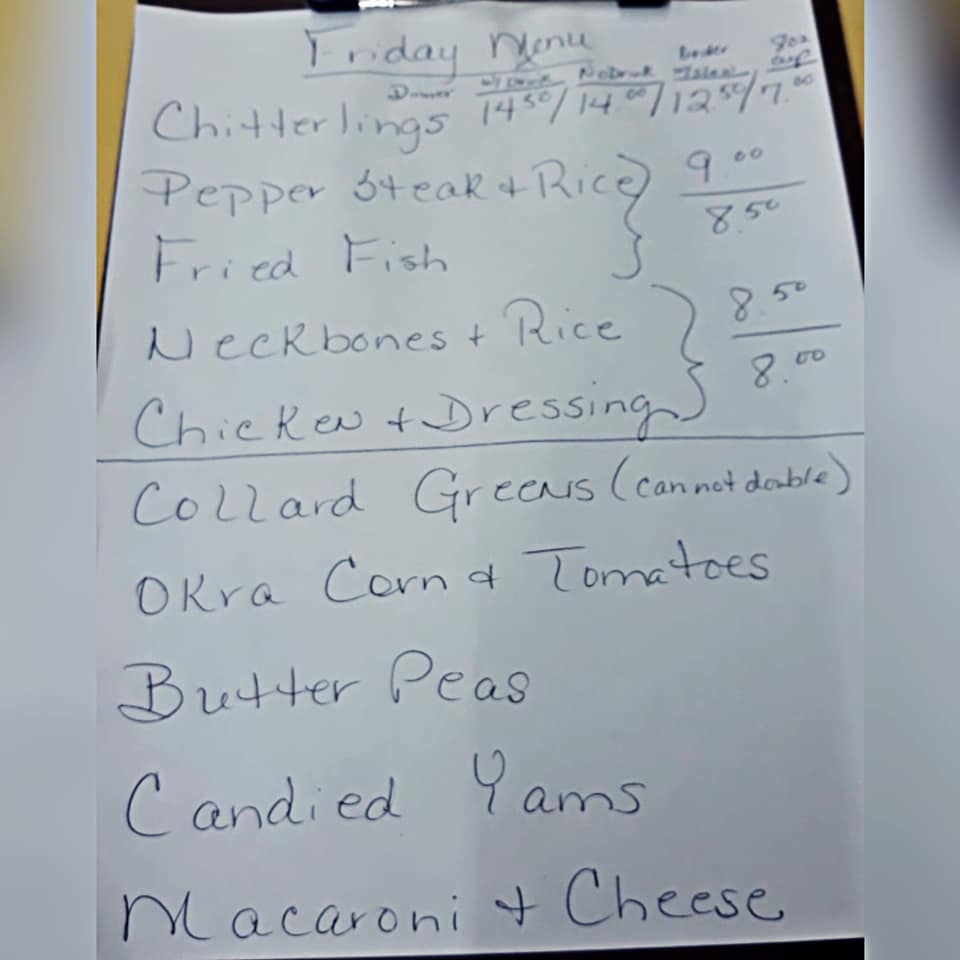 Friday Menu
Dinner w/ Drink No Drink 8oz cup
Chitterlings 14.50/ 14.00/ 12.50/ 7.00
Pepper Steak + Rice } 9.00
Fried Fish 8.50
Neckbones + Rice } 8.50
Chicken + Dressing 8.00
Collard Greens (cannot double)
Okra Corn & Tomatoes
Butter Peas
Candied Yams
Macaroni + Cheese